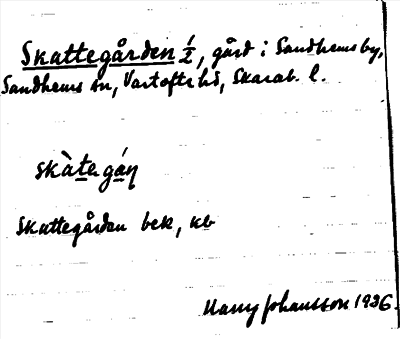 Skattegården ½, gård i Sandhems by,
Sandhems sn, Vartofta hd, Skarab. l.
skàtegáṇ
Skattegården bek, kb
Harry Johansson 1936.